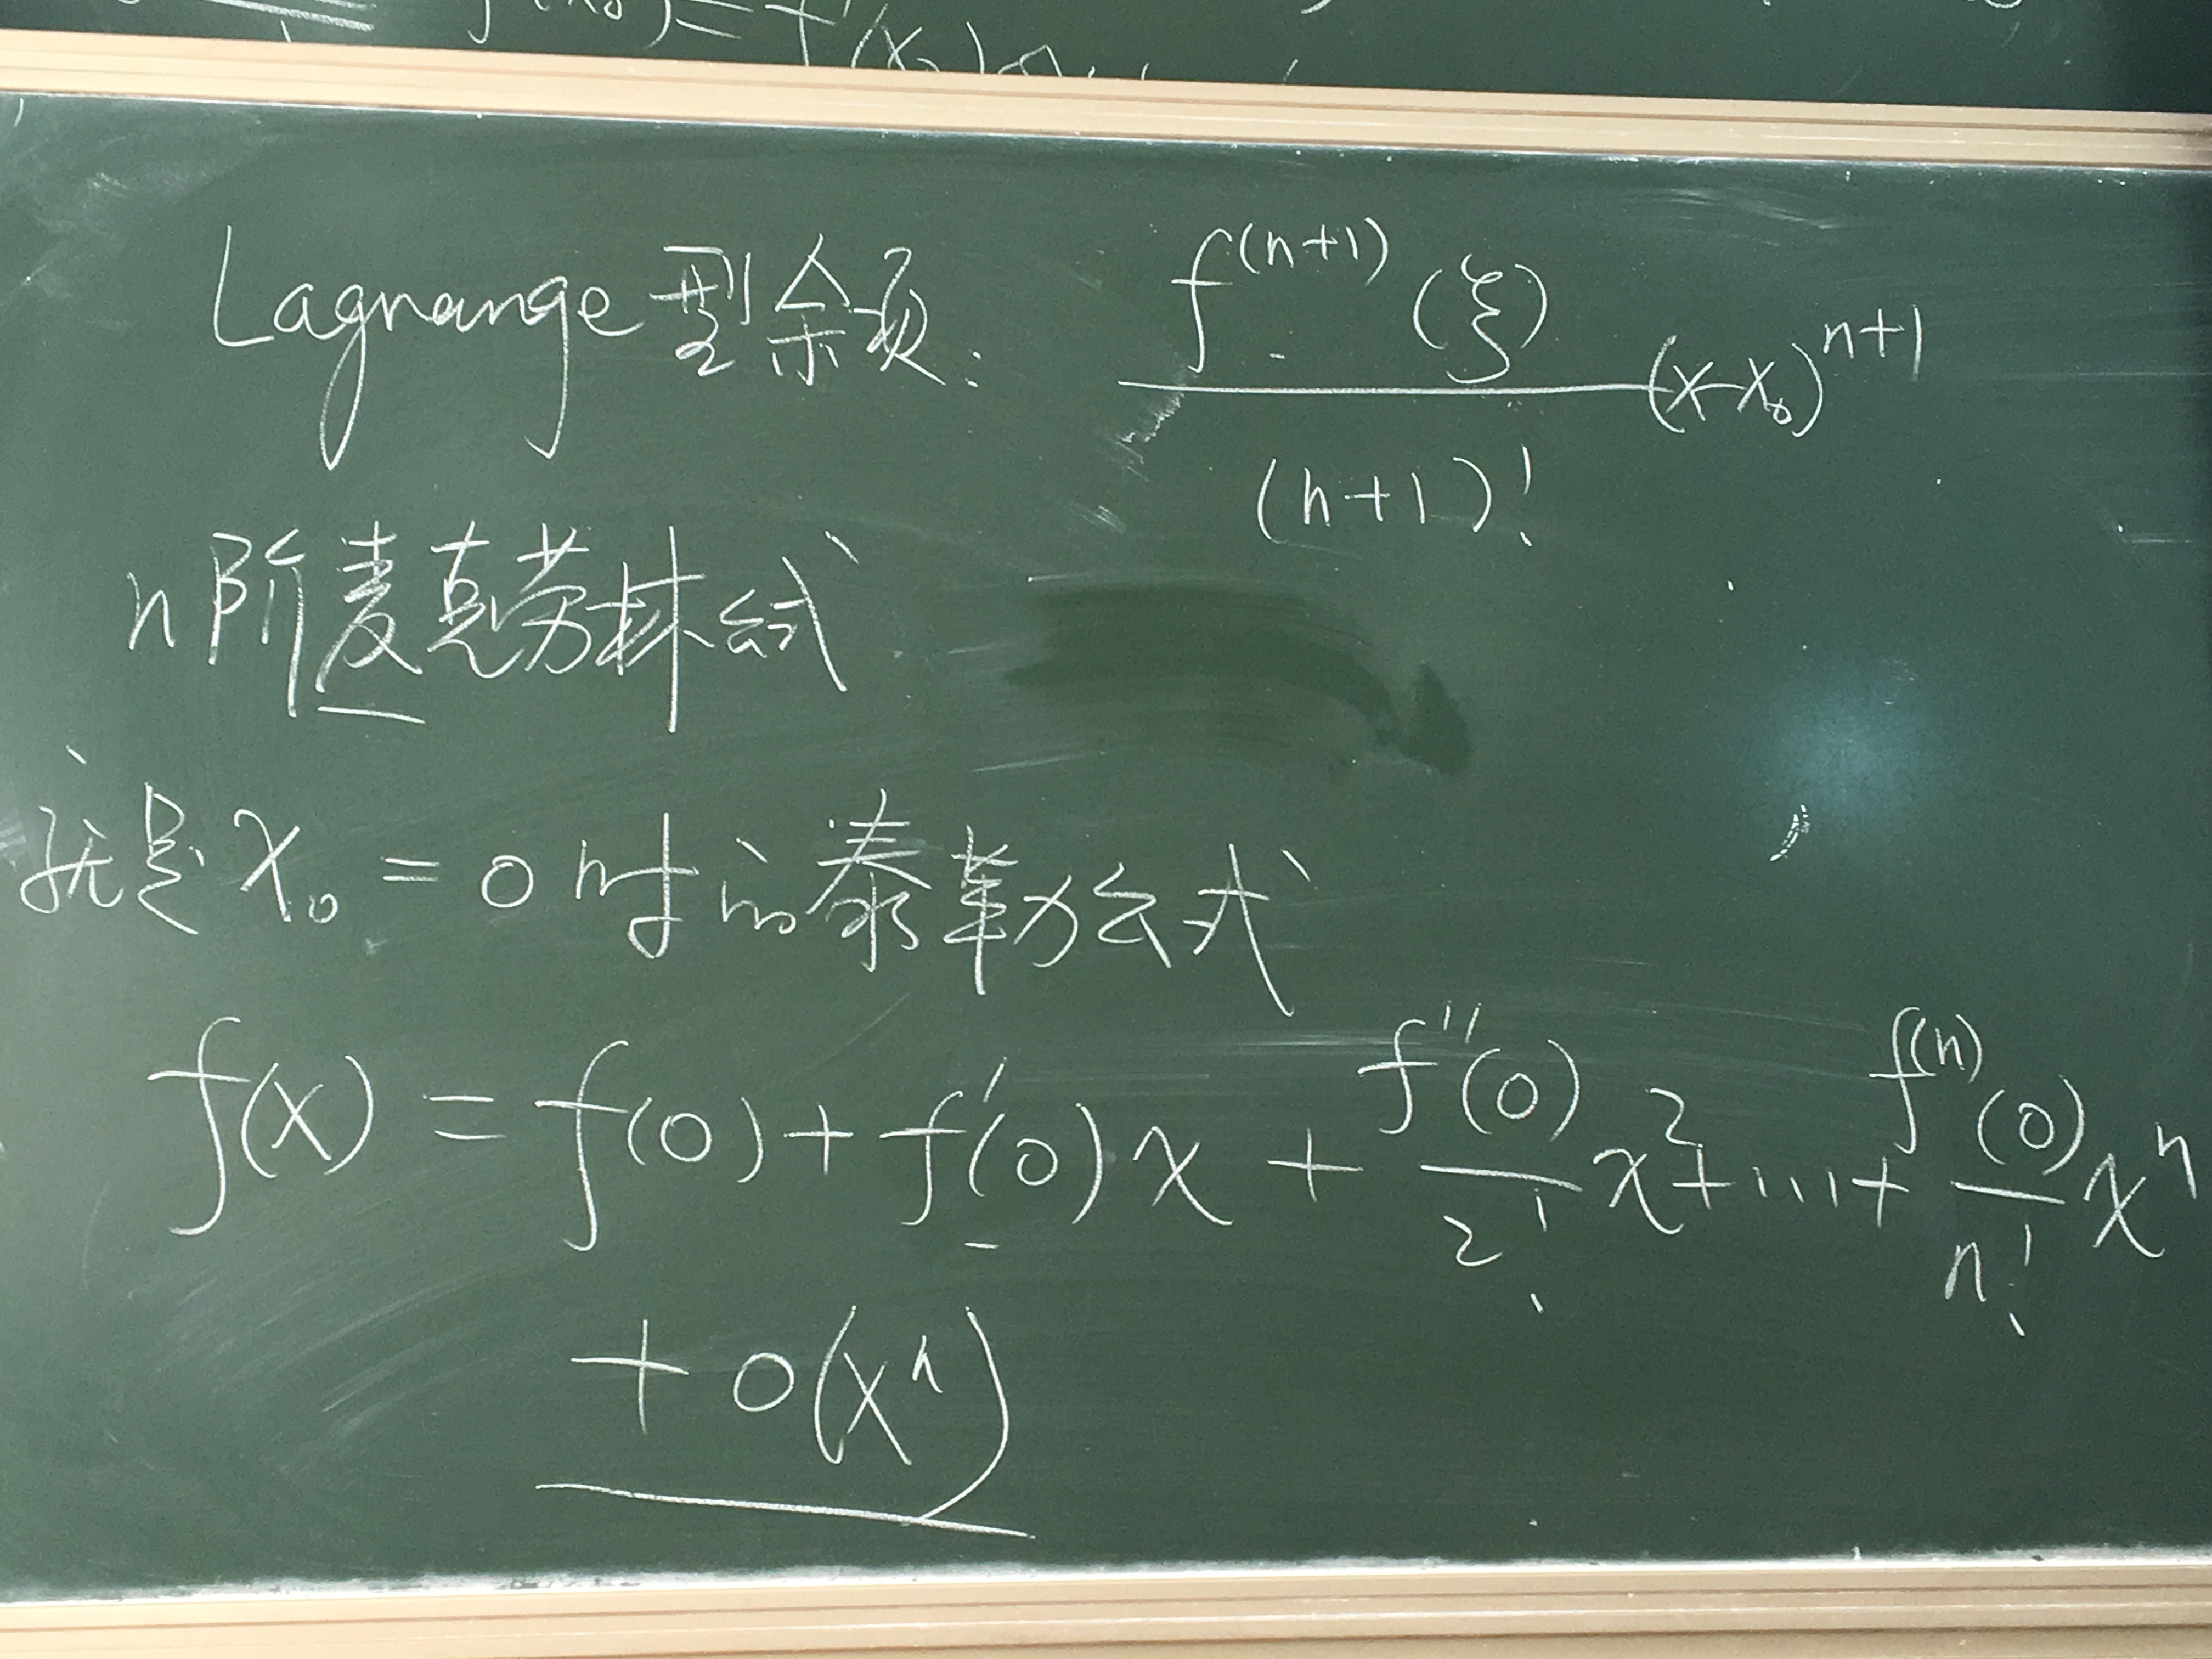 f(x₀) = f'(x₀)
Lagrange型余项: f^{(n+1)}(ξ)/(n+1)! (x-x₀)^{n+1}
n阶麦克劳林公式
就是x₀=0时的泰勒公式
f(x) = f(0) + f'(0)x + f''(0)/2! x² + ... + f^{(n)}(0)/n! xⁿ
+ o(xⁿ)